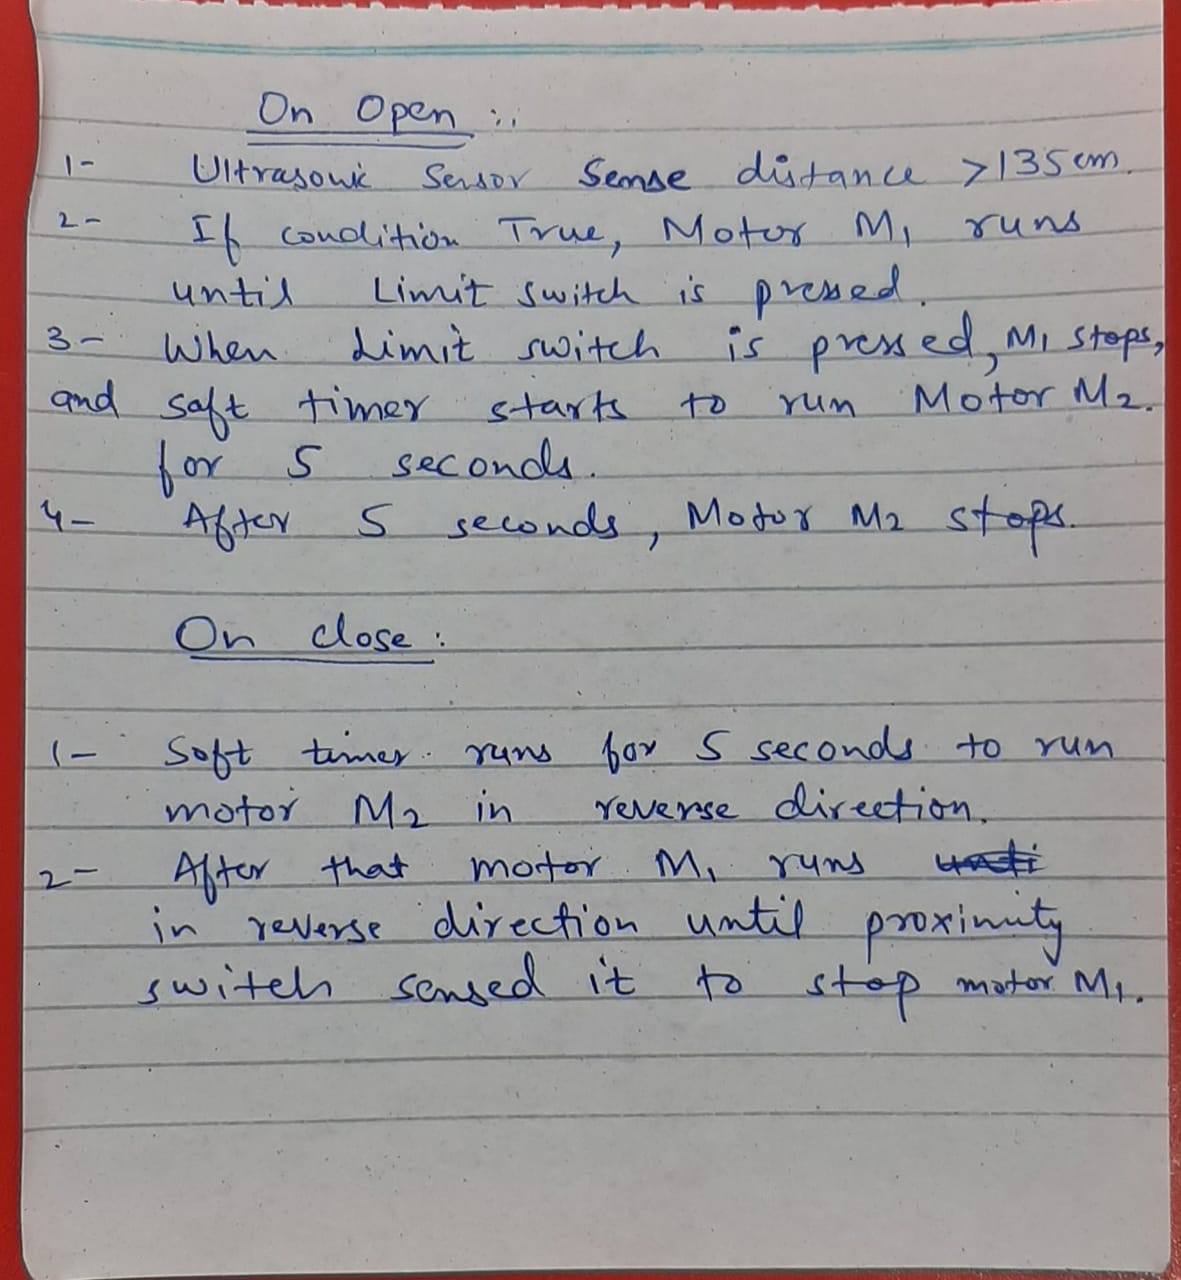 On Open :.
1- Ultrasonic Sensor Sense distance >135cm.
2- If condition True, Motor M1 runs
until Limit switch is pressed.
3- When Limit switch is pressed, M1 stops,
and soft timer starts to run Motor M2.
for 5 seconds.
4- After 5 seconds, Motor M2 stops.
On close :
1- Soft timer runs for 5 seconds to run
motor M2 in reverse direction.
2- After that motor M1 runs
in reverse direction until proximity
switch sensed it to stop motor M1.